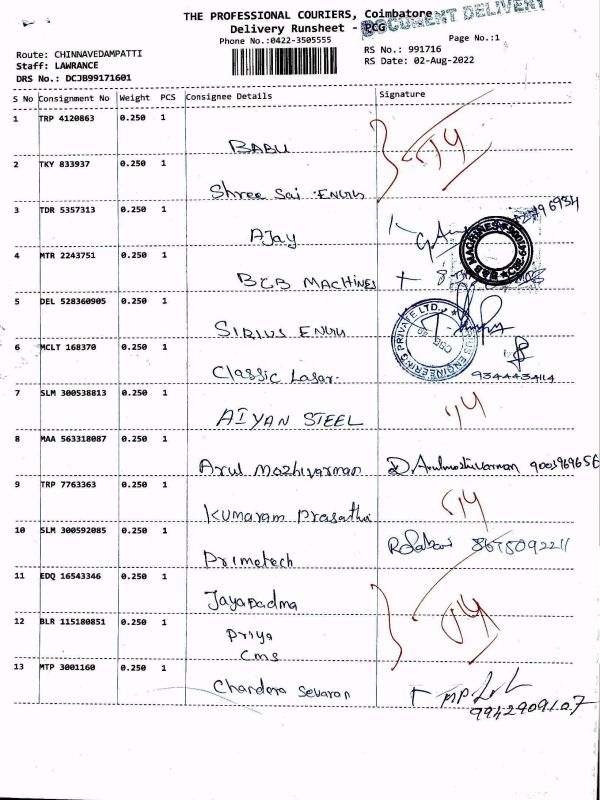 THE PROFESSIONAL COURIERS, Coimbatore
DOCUMENT DELIVERY
Delivery Runsheet - PCG
Phone No.:0422-3505555
Page No.:1
Route: CHINNAVEDAMPATTI
RS No.: 991716
Staff: LAWRANCE
RS Date: 02-Aug-2022
DRS No.: DCJB99171601
S No Consignment No Weight PCS Consignee Details Signature
1 TRP 4120863 0.250 1
BABU
2 TKY 833937 0.250 1
Shree Sai Engg
3 TDR 5357313 0.250 1
AJay
4 MTR 2243751 0.250 1
B&B MACHINES
5 DEL 528360905 0.250 1
SIRIUS ENGG
6 MCLT 168370 0.250 1
Classic Laser.
7 SLM 300538813 0.250 1
AIYAN STEEL
8 MAA 563318087 0.250 1
Arul Mozhivarman D. Arulmozhivarman
9 TRP 7763363 0.250 1
Kumaram Prasathi
10 SLM 300592085 0.250 1
Primetech
11 EDQ 16543346 0.250 1
Jayapadma
12 BLR 115180851 0.250 1
Priya
CMS
13 MTP 3001160 0.250 1
Chandra Sevaran
9942909107